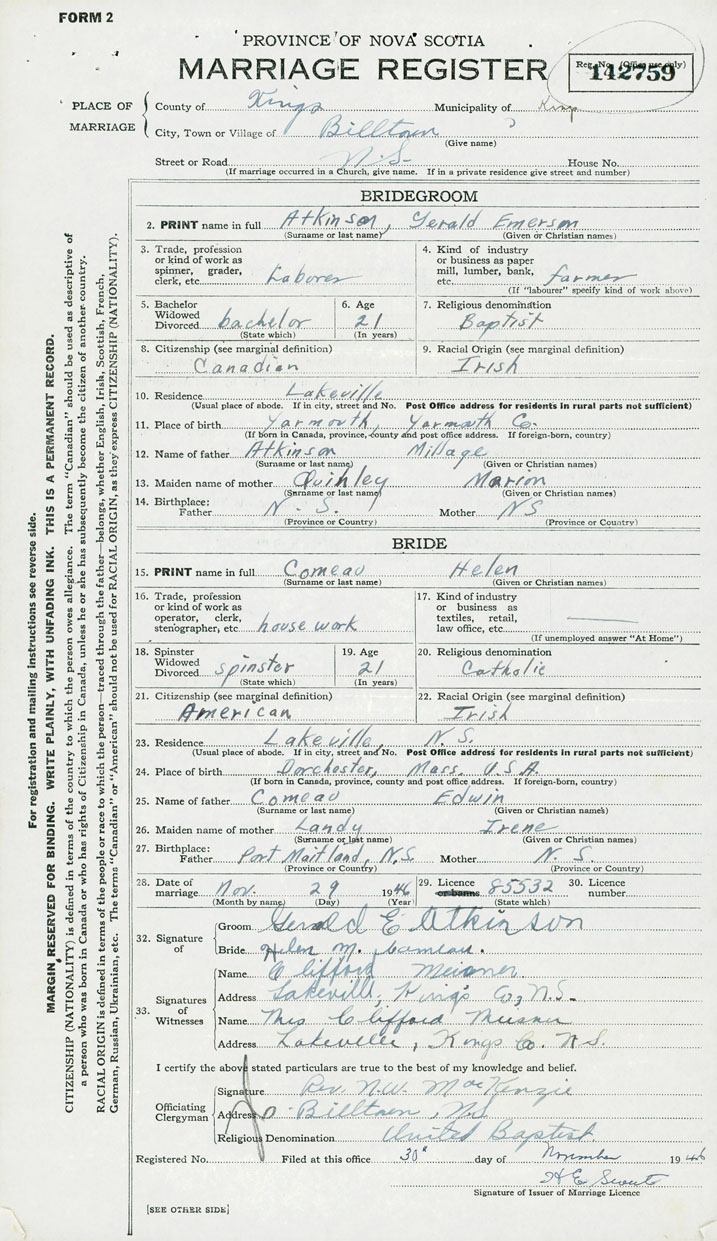 FORM 2
PROVINCE OF NOVA SCOTIA
MARRIAGE REGISTER
Reg. No. (Office use only)
142759
PLACE OF MARRIAGE
County of Kings Municipality of Kings
City, Town or Village of Billtown
(Give name)
Street or Road N.S. House No.
(If marriage occurred in a Church, give name. If in a private residence give street and number)
BRIDEGROOM
2. PRINT name in full Atkinson, Gerald Emerson
(Surname or last name) (Given or Christian names)
3. Trade, profession or kind of work as spinner, grader, clerk, etc. Laborer
4. Kind of industry or business as paper mill, lumber, bank, etc. farmer
(If "labourer" specify kind of work above)
5. Bachelor Widowed Divorced bachelor
(State which)
6. Age 21
(In years)
7. Religious denomination
Baptist
8. Citizenship (see marginal definition)
Canadian
9. Racial Origin (see marginal definition)
Irish
10. Residence Lakeville
(Usual place of abode. If in city, street and No. Post Office address for residents in rural parts not sufficient)
11. Place of birth Yarmouth, Yarmouth Co.
(If born in Canada, province, county and post office address. If foreign-born, country)
12. Name of father Atkinson Millage
(Surname or last name) (Given or Christian names)
13. Maiden name of mother Quinley Marion
(Surname or last name) (Given or Christian names)
14. Birthplace: Father N. S. Mother NS
(Province or Country) (Province or Country)
BRIDE
15. PRINT name in full Comeau Helen
(Surname or last name) (Given or Christian names)
16. Trade, profession or kind of work as operator, clerk, stenographer, etc. house work
17. Kind of industry or business as textiles, retail, law office, etc.
(If unemployed answer "At Home")
18. Spinster Widowed Divorced spinster
(State which)
19. Age 21
(In years)
20. Religious denomination
Catholic
21. Citizenship (see marginal definition)
American
22. Racial Origin (see marginal definition)
Irish
23. Residence Lakeville, N.S.
(Usual place of abode. If in city, street and No. Post Office address for residents in rural parts not sufficient)
24. Place of birth Dorchester, Mass. U.S.A.
(If born in Canada, province, county and post office address. If foreign-born, country)
25. Name of father Comeau Edwin
(Surname or last name) (Given or Christian names)
26. Maiden name of mother Landy Irene
(Surname or last name) (Given or Christian names)
27. Birthplace: Father Port Maitland, N.S. Mother N. S.
(Province or Country) (Province or Country)
28. Date of marriage Nov. 29 1946
(Month by name) (Day) (Year)
29. Licence or banns 85532
(State which)
30. Licence number
32. Signature of
Groom Gerald E Atkinson
Bride Helen M. Comeau.
33. Signatures of Witnesses
Name Clifford Meisner
Address Lakeville, King's Co, N.S.
Name Mrs Clifford Meisner
Address Lakeville, Kings Co. N.S.
I certify the above stated particulars are true to the best of my knowledge and belief.
Officiating Clergyman
Signature Rev. N.W. MacKenzie
Address Billtown, N.S.
Religious Denomination United Baptist
Registered No. Filed at this office 30" day of November 1946
Signature of Issuer of Marriage Licence
[SEE OTHER SIDE]
For registration and mailing instructions see reverse side.
MARGIN RESERVED FOR BINDING. WRITE PLAINLY, WITH UNFADING INK. THIS IS A PERMANENT RECORD.
CITIZENSHIP (NATIONALITY) is defined in terms of the country to which the person owes allegiance. The term "Canadian" should be used as descriptive of
a person who was born in Canada or who has rights of Citizenship in Canada, unless he or she has subsequently become the citizen of another country.
RACIAL ORIGIN is defined in terms of the people or race to which the person—traced through the father—belongs, whether English, Irish, Scottish, French,
German, Russian, Ukrainian, etc. The terms "Canadian" or "American" should not be used for RACIAL ORIGIN, as they express CITIZENSHIP (NATIONALITY).